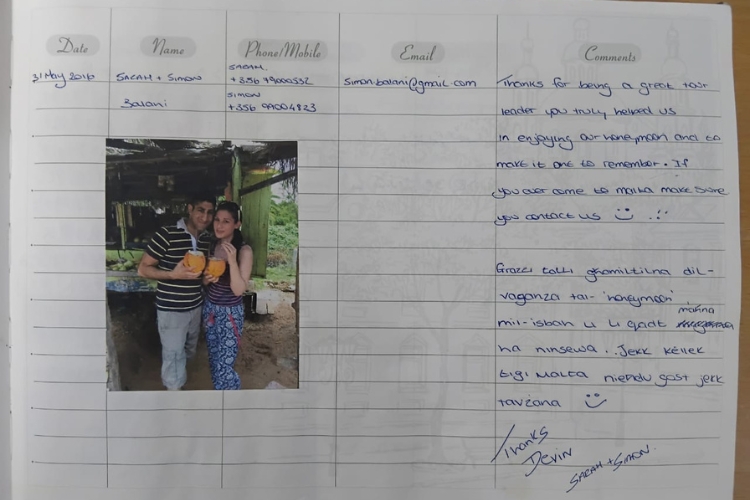 Date Name Phone/Mobile Email Comments
31 May 2016 SARAH + SIMON
Balani
SARAH.
+356 79000552
SIMON
+356 99004823
simon.balani@gmail.com
Thanks for being a great tour
leader you truly helped us
in enjoying our honeymoon and to
make it one to remember. If
you ever come to malta make sure
you contact us
Grazzi talli ghamiltilna dil-
vaganza tal- 'honeymoon'
mil-isbah u li qatt mahna
ha ninsewa.. Jekk kellek
tigi Malta niehdu gost jekk
tavzana
Thanks
Devin
SARAH + SIMON.